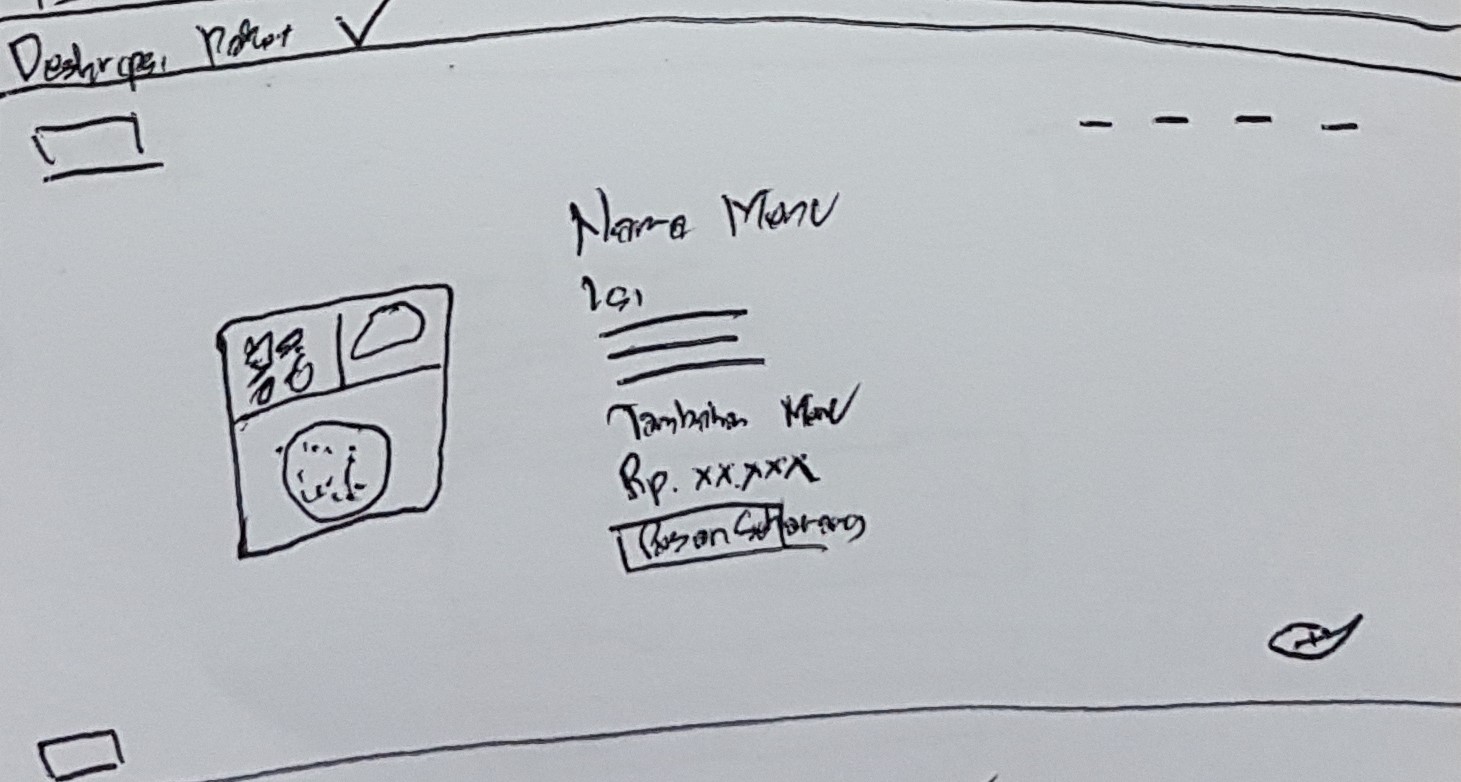 Deskripsi Paket
Nama Menu
Isi
Tambahan Menu
Rp. xx.xxx
Pesan Sekarang